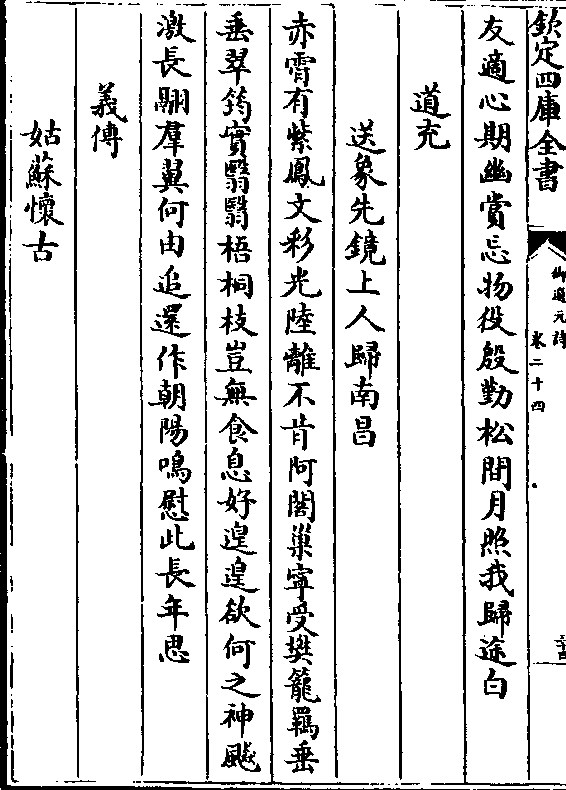 欽定四庫全書
御選元詩
卷二十四
友適心期幽賞忘物役殷勤松間月照我歸途白
道充
送象先鏡上人歸南昌
赤霄有紫鳳文彩光陸離不肯阿閣巢寧受樊籠羈垂
垂翠筠實翳翳梧桐枝豈無食息好遑遑欲何之神飈
激長翮羣翼何由追還作朝陽鳴慰此長年思
義傳
姑蘇懷古